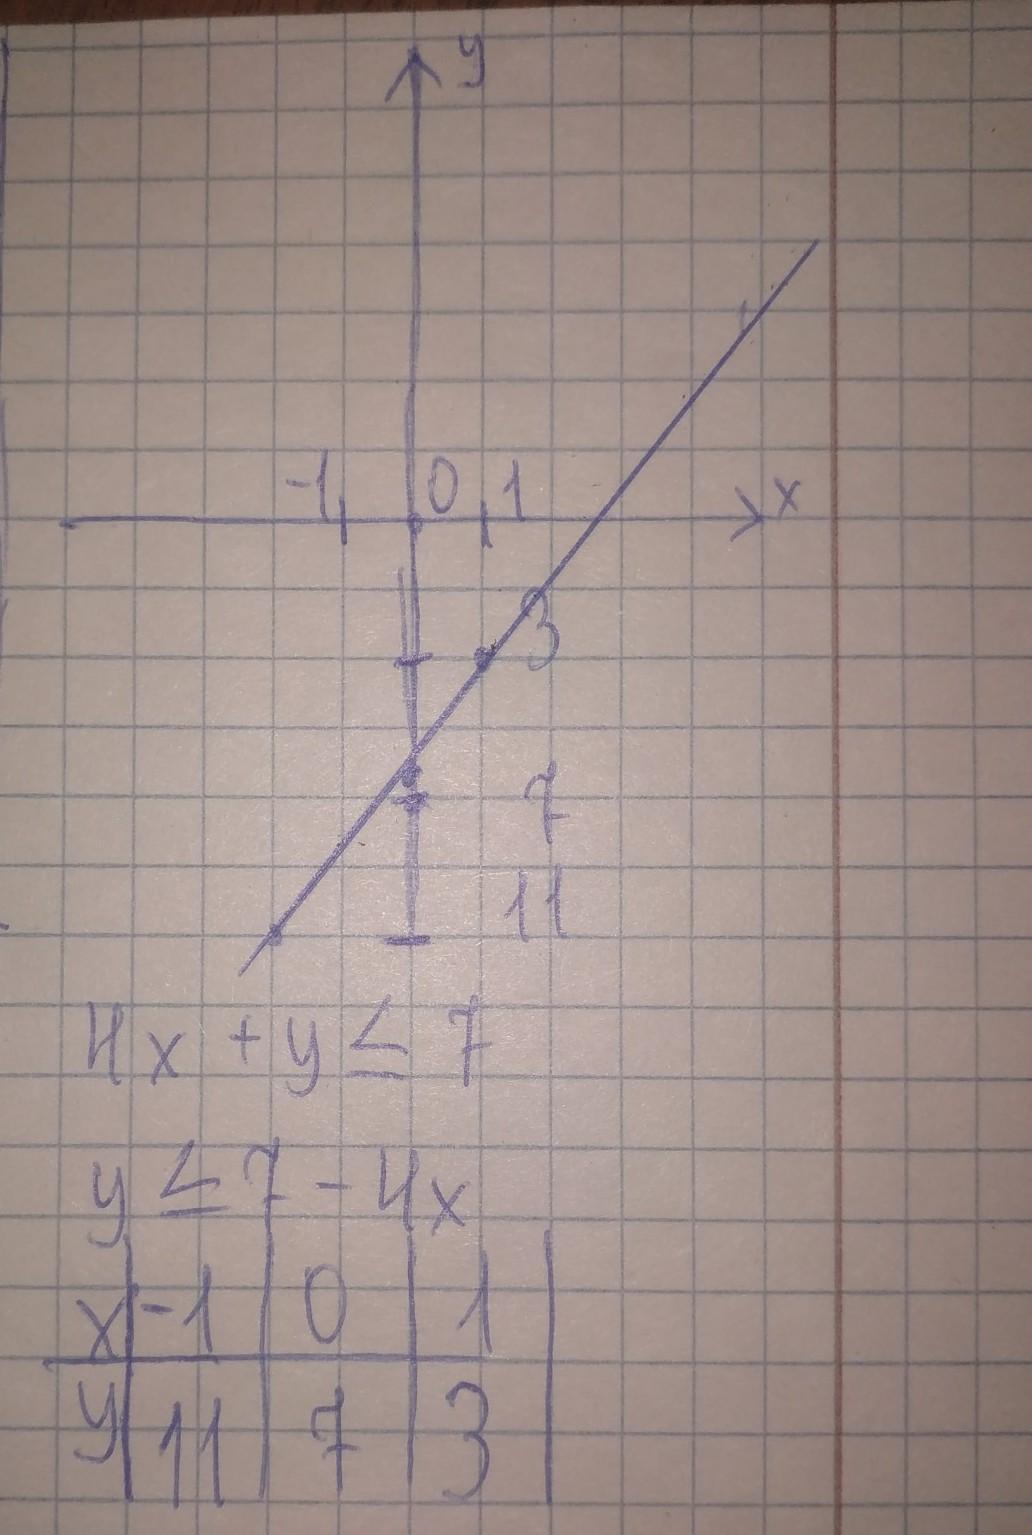 y
-1 0 1 x
3
7
11
4x + y ≤ 7
y ≤ 7 - 4x
x -1 0 1
y 11 7 3